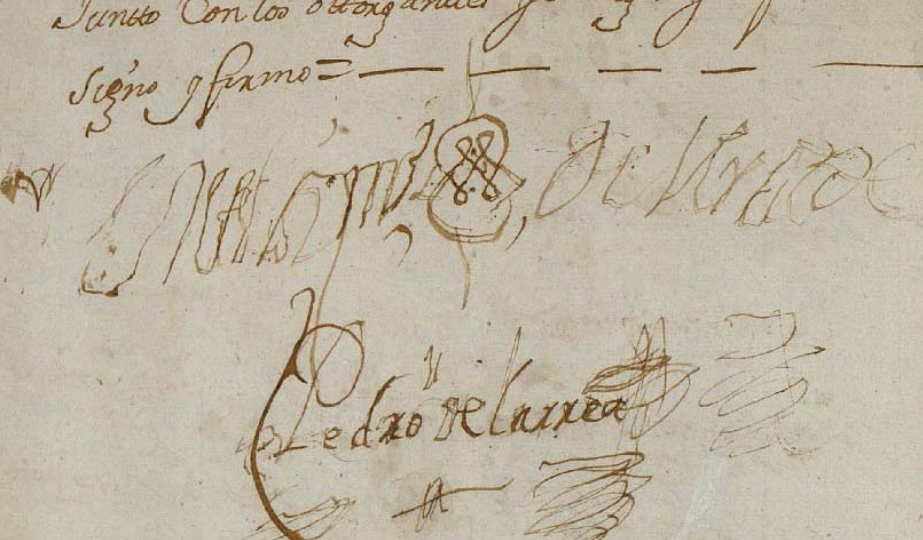 Juntto Con los ottorgantes
signo y firmo =
En testimo de Verdad
Pedro de larrea